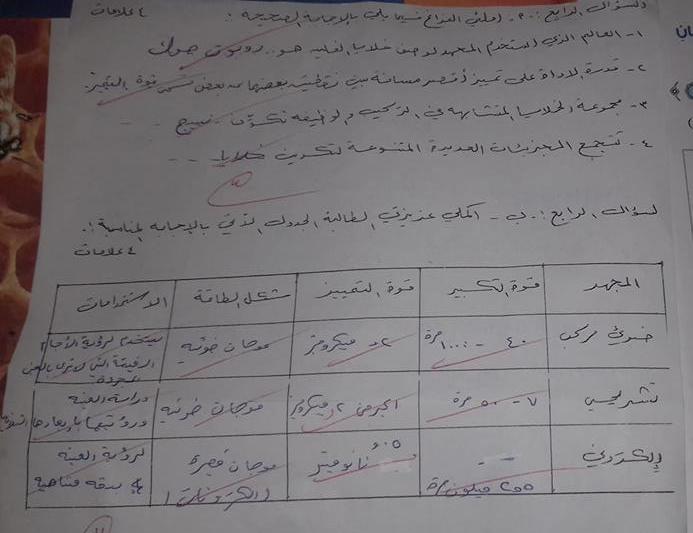 السؤال الرابع :- أ- املئي الفراغ فيما يلي بالإجابة الصحيحة : ٤ علامات
١- العالم الذي استخدم المجهر لوصف خلايا الفلين هو .. روبرت هوك
٢- قدرة الاداة على تمييز أقصر مسافة بين نقطتين بعضهما عن بعض تسمى قوة التمييز
٣- مجموعة الخلايا المتشابهة في التركيب والوظيفة تكون .. نسيج - -
٤- تتجمع الجزيئات العديدة المتنوعة لتكوين خلايا - -
٣
السؤال الرابع :- ب - اكملي عزيزتي الطالبة الجدول الآتي بالإجابة المناسبة :.
٤ علامات
المجهر قوة التكبير قوة التمييز شكل الطاقة الاستخدامات
ضوئي مركب ٤٠ - ١٠٠٠ مرة ٠,٢ ميكرومتر موجات ضوئية يستخدم لرؤية الأجسام
الدقيقة التي لا ترى بالعين
المجردة
تشريحي ٧ - ٥٠ مرة ميكرومتر موجات ضوئية دراسة العينة
ورؤيتها بإبعادها
إلكتروني ٢٥٠ مليون مرة ٠,٥ نانوميتر موجات قصيرة
(الكترونات) لرؤية العينة
بدقة متناهية